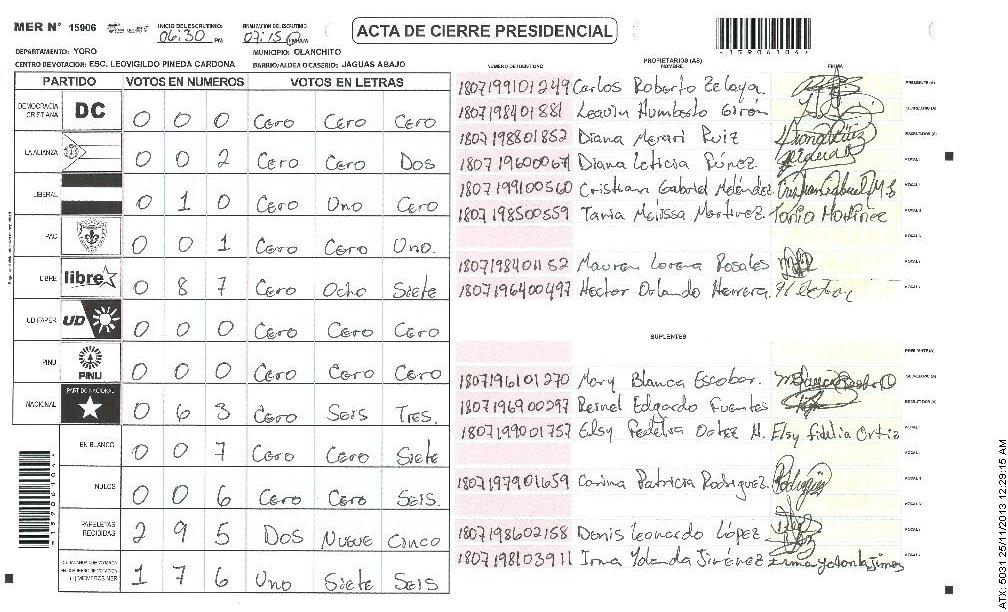 MER Nº 15906 INICIO DEL ESCRUTINIO 06:30 PM FINALIZACION DEL ESCRUTINIO 07:15 PM
ACTA DE CIERRE PRESIDENCIAL
15906104
DEPARTAMENTO: YORO MUNICIPIO: OLANCHITO
CENTRO DE VOTACION: ESC. LEOVIGILDO PINEDA CARDONA BARRIO/ALDEA O CASERIO: JAGUAS ABAJO
PARTIDO VOTOS EN NUMEROS VOTOS EN LETRAS
DEMOCRACIA CRISTIANA DC 0 0 0 Cero Cero Cero
LA ALIANZA 0 0 2 Cero Cero Dos
LIBERAL 0 1 0 Cero Uno Cero
PAC 0 0 1 Cero Cero Uno.
LIBRE libre 0 8 7 Cero Ocho Siete
UD FAPER UD 0 0 0 Cero Cero Cero
PINU PINU 0 0 0 Cero Cero Cero
NACIONAL PARTIDO NACIONAL 0 6 3 Cero Seis Tres.
EN BLANCO 0 0 7 Cero Cero Siete
NULOS 0 0 6 Cero Cero Seis.
PAPELETAS RECIBIDAS 2 9 5 Dos Nueve Cinco
1 7 6 Uno Siete Seis
15906104
NUMERO DE IDENTIDAD PROPIETARIOS (AS) NOMBRE FIRMA
1807199101249 Carlos Roberto Zelaya. PRESIDENTE (A)
1807198401881 Leavin Humberto Girón SECRETARIO (A)
1807198801852 Diana Merari Ruiz ESCRUTADOR (A)
1807196000067 Diana Leticia Púnez. VOCAL I
1807199100560 Cristian Gabriel Meléndez Cristian Gabriel M.
1807198500559 Tania Melissa Martinez. Tania Martinez
1807198401152 Mauren Lorena Rosales
1807196400497 Hector Orlando Herrera
SUPLENTES
PRESIDENTE (A)
1807196101270 Mary Blanca Escobar. SECRETARIO (A)
1807196900297 Reinel Edgardo Fuentes ESCRUTADOR (A)
1807199001757 Elsy Fidelia Ortez M. Elsy fidelia Ortiz
1807197901659 Carina Patricia Rodriguez.
1807198602158 Denis Leonardo López
1807198103911 Irma Yolanda Jiménez Irma Yolanda Jimenez
ATX: 5031 25/11/2013 12:29:15 AM